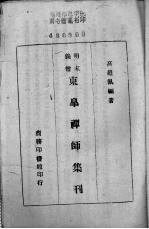 高羅佩編著
明末義僧
東皐禪師集刊
商務印書館印行